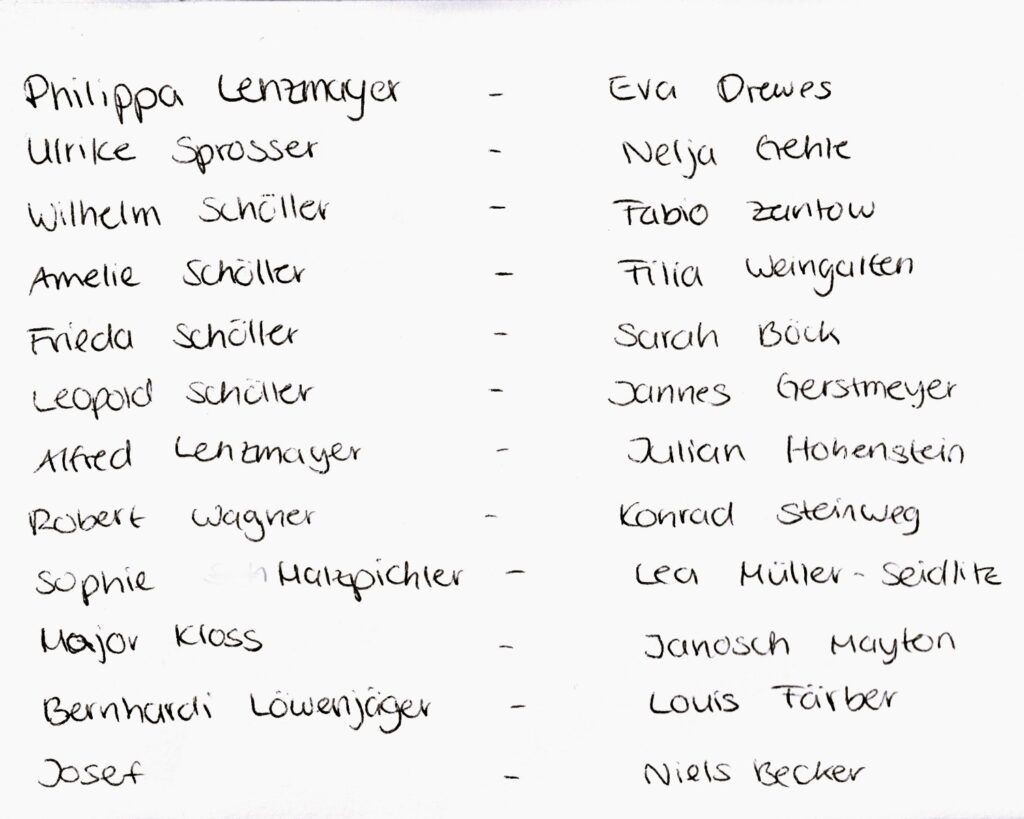 Philippa Lenzmayer - Eva Drewes
Ulrike Sprosser - Nelja Gehle
Wilhelm Schöller - Fabio Zantow
Amelie Schöller - Filia Weingarten
Frieda Schöller - Sarah Böck
Leopold Schöller - Jannes Gerstmeyer
Alfred Lenzmayer - Julian Hohenstein
Robert Wagner - Konrad Steinweg
Sophie Malzpichler - Lea Müller-Seidlitz
Major Kloss - Janosch Mayton
Bernhardi Löwenjäger - Louis Färber
Josef - Niels Becker